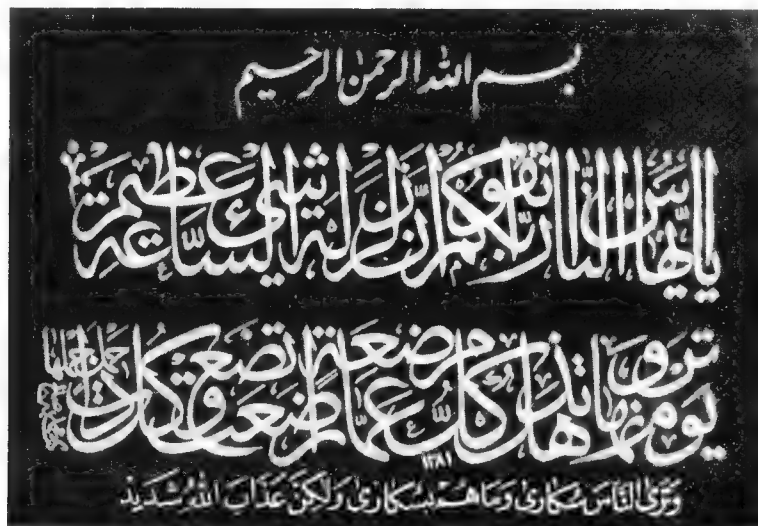 بسم الله الرحمن الرحيم
يا ايها الناس اتقوا ربكم ان زلزلة الساعة شيئ عظيم
يوم ترونها تذهل كل مرضعة عما ارضعت وتضع كل ذات حمل حملها
١٣٨١
وَتَرَى النَّاسَ سُكَارىٰ وَمَا هُمْ بِسُكَارىٰ وَلٰكِنَّ عَذَابَ اللهِ شَدَيِدْ